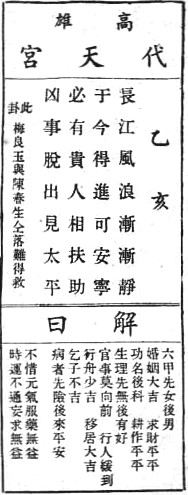 高雄
代天宮
乙亥
長江風浪漸漸靜
于今得進可安寧
必有貴人相扶助
凶事脫出見太平
此卦 梅良玉與陳春生仝落難得救
解曰
六甲先女後男
婚姻大吉 求財平平
功名後科 耕作平平
生理先無後有好
官事莫向前 行人緩到
行舟少吉 移居大吉
乞子不吉
病者先險後來平安
不惜元氣服藥無益
時運不通妄求無益